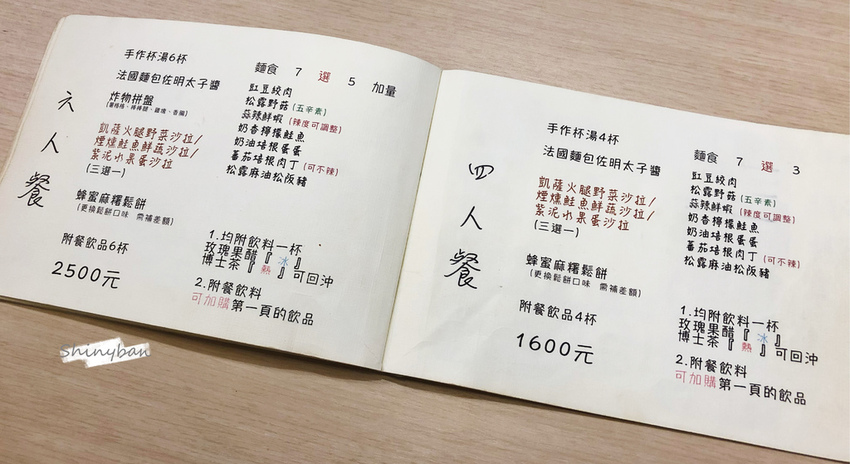 六人餐
手作杯湯6杯
法國麵包佐明太子醬
炸物拼盤
凱薩火腿野菜沙拉/
煙燻鮭魚鮮蔬沙拉/
紫泥水果蛋沙拉
(三選一)
蜂蜜麻糬鬆餅
(更換鬆餅口味 需補差額)
附餐飲品6杯
2500元
麵食 7 選 5 加量
豇豆絞肉
松露野菇(五辛素)
蒜辣鮮蝦(辣度可調整)
奶香檸檬鮭魚
奶油培根蛋蛋
蕃茄培根肉丁(可不辣)
松露麻油松阪豬
1.均附飲料一杯
玫瑰果醋『冰』
博士茶『熱』可回沖
2.附餐飲料
可加購第一頁的飲品
四人餐
手作杯湯4杯
法國麵包佐明太子醬
凱薩火腿野菜沙拉/
煙燻鮭魚鮮蔬沙拉/
紫泥水果蛋沙拉
(三選一)
蜂蜜麻糬鬆餅
(更換鬆餅口味 需補差額)
附餐飲品4杯
1600元
麵食 7 選 3
豇豆絞肉
松露野菇(五辛素)
蒜辣鮮蝦(辣度可調整)
奶香檸檬鮭魚
奶油培根蛋蛋
蕃茄培根肉丁(可不辣)
松露麻油松阪豬
1.均附飲料一杯
玫瑰果醋『冰』
博士茶『熱』可回沖
2.附餐飲料
可加購第一頁的飲品
shinyban